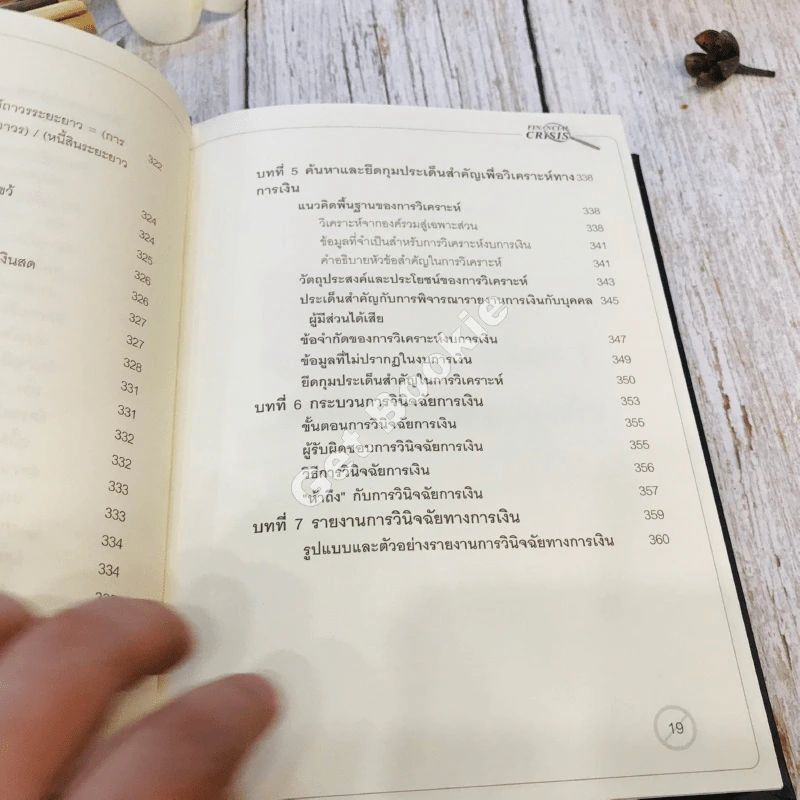 ถาวรระยะยาว = (การ
าวร) / (หนี้สินระยะยาว 322
324
324
งินสด 325
326
326
327
327
328
331
331
332
332
333
333
334
334
FINANCIAL
CRISIS
บทที่ 5 ค้นหาและยึดกุมประเด็นสำคัญเพื่อวิเคราะห์ทาง 338
การเงิน
แนวคิดพื้นฐานของการวิเคราะห์ 338
วิเคราะห์จากองค์รวมสู่เฉพาะส่วน 338
ข้อมูลที่จำเป็นสำหรับการวิเคราะห์งบการเงิน 341
คำอธิบายหัวข้อสำคัญในการวิเคราะห์ 341
วัตถุประสงค์และประโยชน์ของการวิเคราะห์ 343
ประเด็นสำคัญกับการพิจารณารายงานการเงินกับบุคคล 345
ผู้มีส่วนได้เสีย
ข้อจำกัดของการวิเคราะห์งบการเงิน 347
ข้อมูลที่ไม่ปรากฏในงบการเงิน 349
ยึดกุมประเด็นสำคัญในการวิเคราะห์ 350
บทที่ 6 กระบวนการวินิจฉัยการเงิน 353
ขั้นตอนการวินิจฉัยการเงิน 355
ผู้รับผิดชอบการวินิจฉัยการเงิน 355
วิธีการวินิจฉัยการเงิน 356
"ห้าถึง" กับการวินิจฉัยการเงิน 357
บทที่ 7 รายงานการวินิจฉัยทางการเงิน 359
รูปแบบและตัวอย่างรายงานการวินิจฉัยทางการเงิน 360
Get Bookie
19